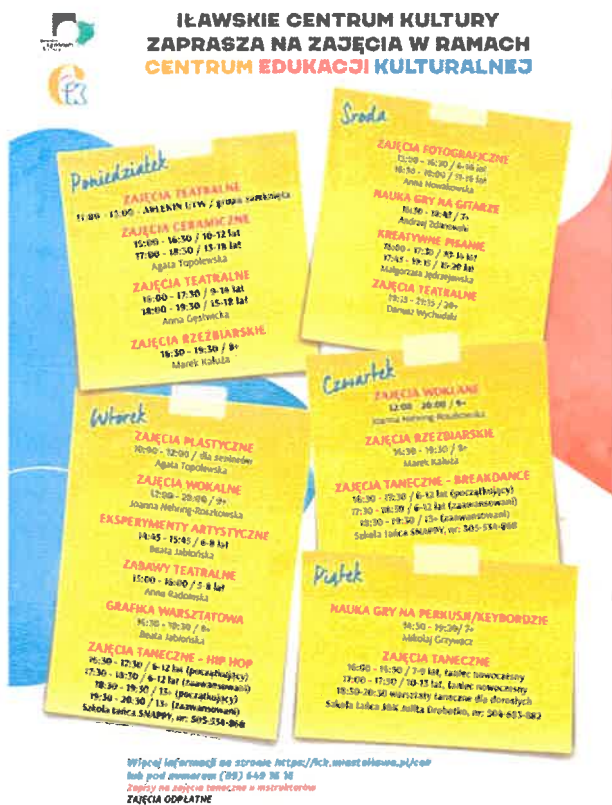 IŁAWSKIE CENTRUM KULTURY
ZAPRASZA NA ZAJĘCIA W RAMACH
CENTRUM EDUKACJI KULTURALNEJ
Poniedziałek
ZAJĘCIA TEATRALNE
ARLEKIN UTW / grupa zamknięta
ZAJĘCIA CERAMICZNE
15:00 - 16:30 / 10-12 lat
17:00 - 18:30 / 13-18 lat
Agata Topolewska
ZAJĘCIA TEATRALNE
16:00 - 17:30 / 9-14 lat
18:00 - 19:30 / 15-18 lat
Anna
ZAJĘCIA RZEŹBIARSKIE
16:30 - 19:30 / 8+
Marek Kałuża
Wtorek
ZAJĘCIA PLASTYCZNE
10:00 - 12:00 / dla seniorów
Agata Topolewska
ZAJĘCIA WOKALNE
12:00 - 20:00 / 9+
Joanna Nehring-Roszkowska
EKSPERYMENTY ARTYSTYCZNE
14:45 - 15:45 / 6-8 lat
Beata Jabłońska
ZABAWY TEATRALNE
15:00 - 16:00 / 5-8 lat
Anna Radomska
GRAFIKA WARSZTATOWA
16:30 - 18:30 / 8+
Beata Jabłońska
ZAJĘCIA TANECZNE - HIP HOP
16:30 - 17:30 / 6-12 lat (początkujący)
17:30 - 18:30 / 6-12 lat (zaawansowani)
18:30 - 19:30 / 13+ (początkujący)
19:30 - 20:30 / 13+ (zaawansowani)
Szkoła tańca SNAPPY, nr: 505-534-868
Środa
ZAJĘCIA FOTOGRAFICZNE
Anna Nowakowska
NAUKA GRY NA GITARZE
/ 7+
Andrzej Zdanowski
KREATYWNE PISANIE
16:00 - 17:30 / 10-14 lat
17:45 - 19:15 / 15-20 lat
Małgorzata Jędrzejewska
ZAJĘCIA TEATRALNE
19:15 - 21:15 / 20+
Dariusz Wychudzki
Czwartek
ZAJĘCIA WOKALNE
12:00 - 20:00 / 9+
Joanna Nehring-Roszkowska
ZAJĘCIA RZEŹBIARSKIE
16:30 - 19:30 / 8+
Marek Kałuża
ZAJĘCIA TANECZNE - BREAKDANCE
16:30 - 17:30 / 6-12 lat (początkujący)
17:30 - 18:30 / 6-12 lat (zaawansowani)
18:30 - 19:30 / 13+ (zaawansowani)
Szkoła tańca SNAPPY, nr: 505-534-868
Piątek
NAUKA GRY NA PERKUSJI/KEYBORDZIE
14:30 - 19:30/ 7+
Mikołaj Grzywacz
ZAJĘCIA TANECZNE
16:00 - 16:50 / 7-9 lat, taniec nowoczesny
17:00 - 17:50 / 10-15 lat, taniec nowoczesny
18:50-20:50 warsztaty taneczne dla dorosłych
Szkoła tańca Julita Drobotko, nr: 504-653-882
Więcej informacji na stronie https://ick.miastoilawa.pl/cek
lub pod numerem (89) 649 16 16
Zapisy na zajęcia taneczne u instruktorów
ZAJĘCIA ODPŁATNE